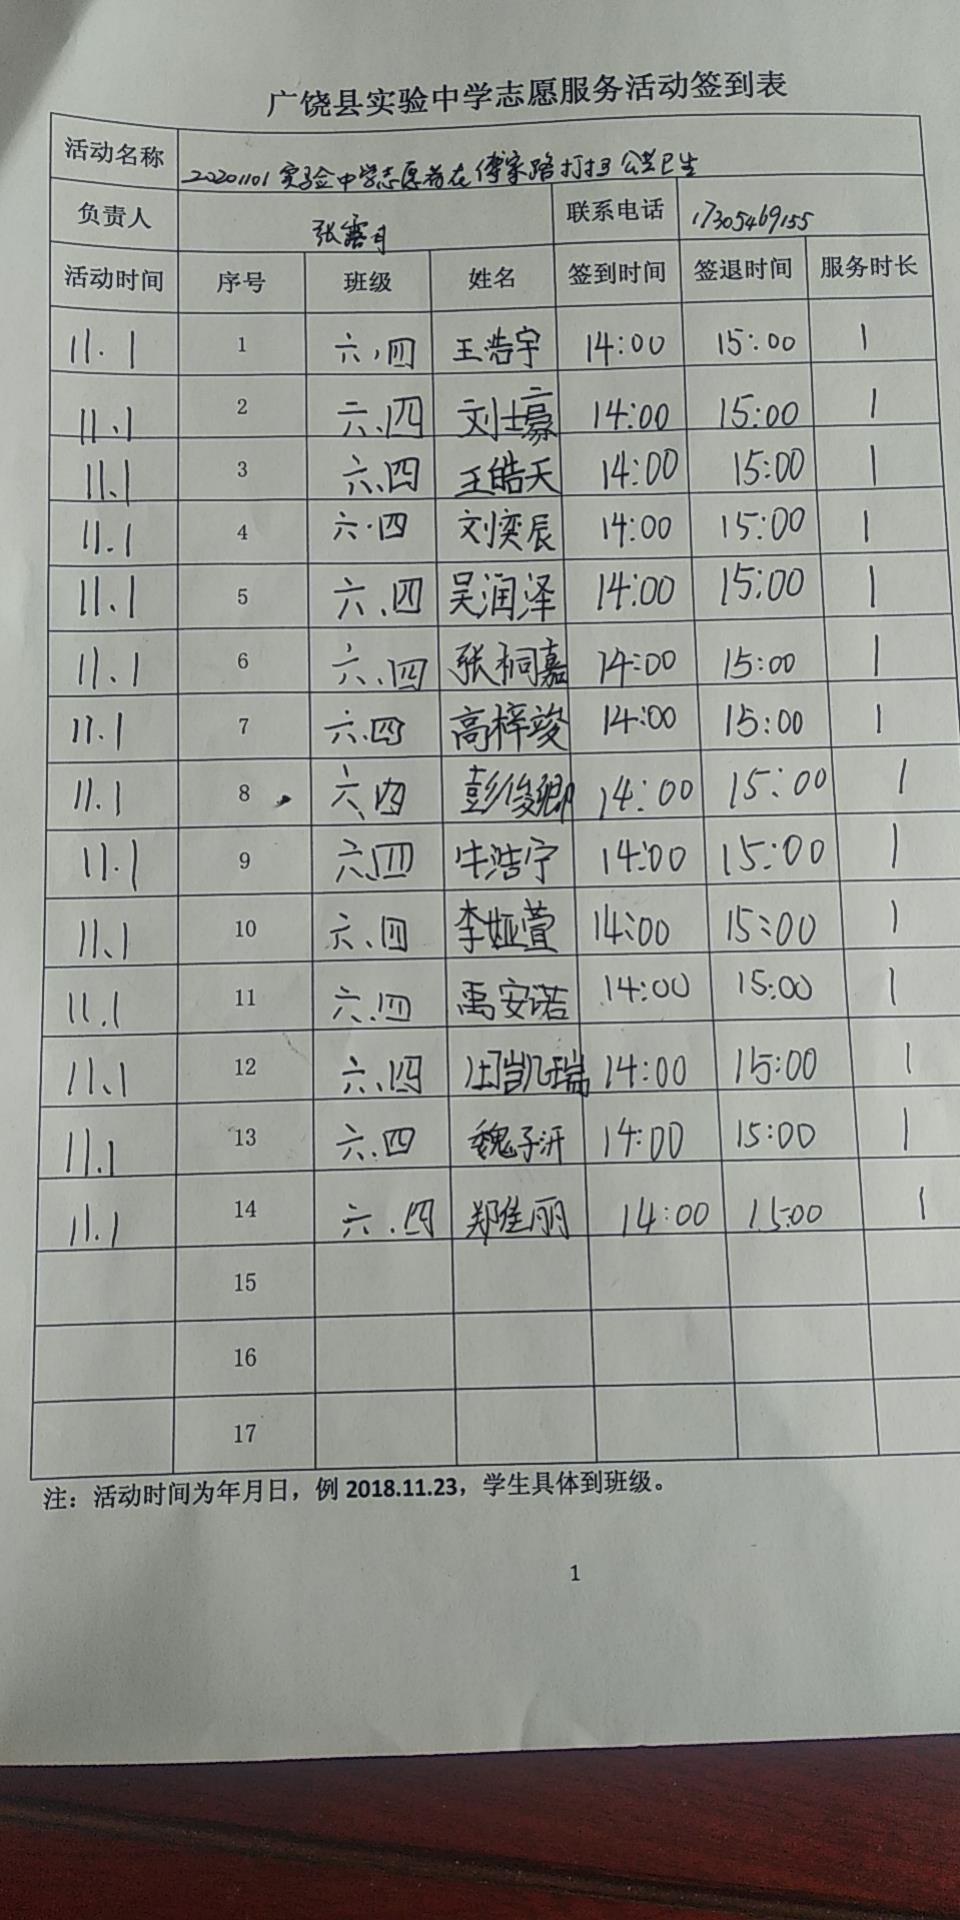 广饶县实验中学志愿服务活动签到表
活动名称 20201101实验中学志愿者在傅家路打扫公共卫生
负责人 张露月 联系电话 17305469155
活动时间 序号 班级 姓名 签到时间 签退时间 服务时长
11.1 1 六.四 王浩宇 14:00 15:00 1
11.1 2 六.四 刘士豪 14:00 15:00 1
11.1 3 六.四 王皓天 14:00 15:00 1
11.1 4 六.四 刘奕辰 14:00 15:00 1
11.1 5 六.四 吴润泽 14:00 15:00 1
11.1 6 六.四 张桐嘉 14:00 15:00 1
11.1 7 六.四 高梓竣 14:00 15:00 1
11.1 8 六.四 彭俊卿 14:00 15:00 1
11.1 9 六.四 牛浩宁 14:00 15:00 1
11.1 10 六.四 李娅萱 14:00 15:00 1
11.1 11 六.四 禹安诺 14:00 15:00 1
11.1 12 六.四 14:00 15:00 1
11.1 13 六.四 魏子沂 14:00 15:00 1
11.1 14 六.四 郑佳丽 14:00 15:00 1
15
16
17
注：活动时间为年月日，例 2018.11.23，学生具体到班级。
1